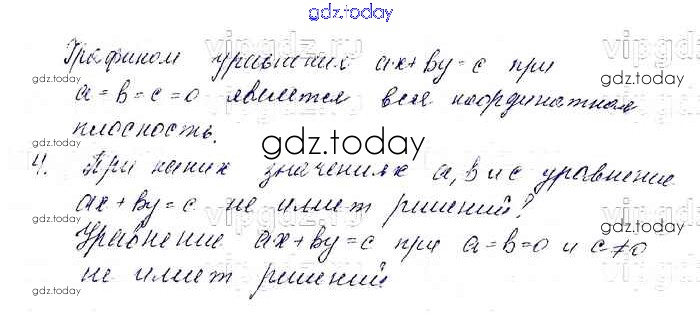 gdz.today
vipgdz.ru vipgdz.ru
Графиком уравнения ax+by=c при
gdz.today gdz.today
a=b=c=0 является вся координатная
плоскость.
gdz.today
4. При каких значениях a, b и c уравнение
gdz.today gdz.today
ax+by=c не имеет решений?
vipgdz.ru vipgdz.ru
Уравнение ax+by=c при a=b=0 и c≠0
gdz.today gdz.today
не имеет решений
gdz.today gdz.today